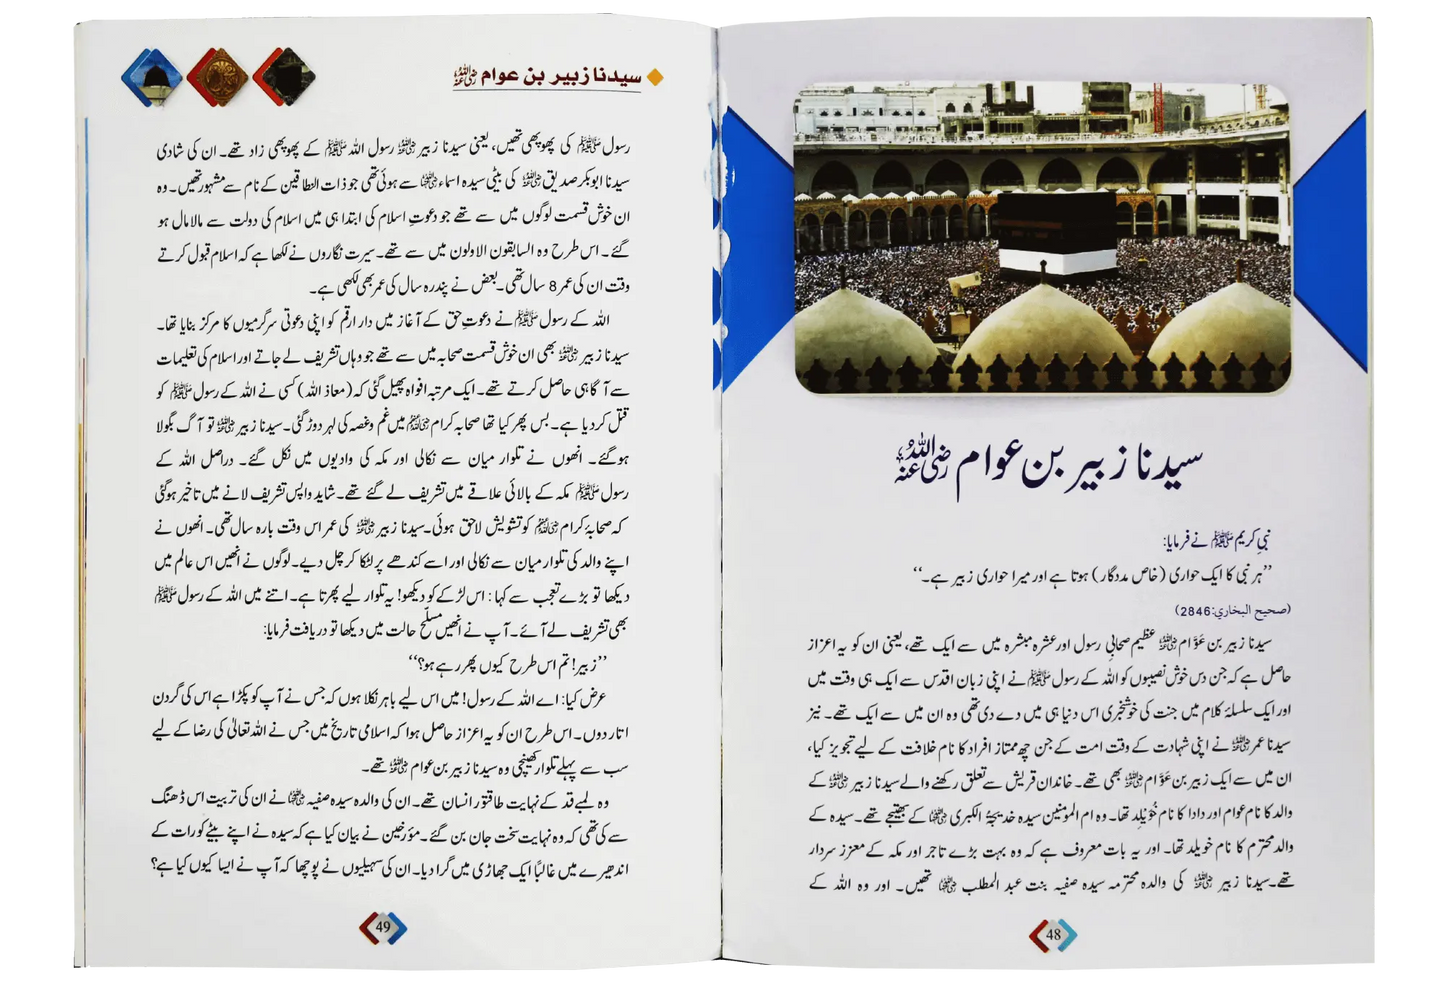 سیدنا زبیر بن عوام رضی اللہ عنہ
نبی کریم ﷺ نے فرمایا:
”ہر نبی کا ایک حواری (خاص مددگار) ہوتا ہے اور میرا حواری زبیر ہے۔“
(صحیح البخاري:2846)
سیدنا زبیر بن عَوَّام رضی اللہ عنہ عظیم صحابیِ رسول اور عشرہ مبشرہ میں سے ایک تھے، یعنی ان کو یہ اعزاز
حاصل ہے کہ جن دس خوش نصیبوں کو اللہ کے رسول ﷺ نے اپنی زبان اقدس سے ایک ہی وقت میں
اور ایک سلسلۂ کلام میں جنت کی خوشخبری اس دنیا ہی میں دے دی تھی وہ ان میں سے ایک تھے۔ نیز
سیدنا عمر رضی اللہ عنہ نے اپنی شہادت کے وقت امت کے جن چھ ممتاز افراد کا نام خلافت کے لیے تجویز کیا،
ان میں سے ایک زبیر بن عَوَّام رضی اللہ عنہ بھی تھے۔ خاندان قریش سے تعلق رکھنے والے سیدنا زبیر رضی اللہ عنہ کے
والد کا نام عوام اور دادا کا نام خُوَیلد تھا۔ وہ ام المؤمنین سیدہ خدیجۃ الکبری رضی اللہ عنہا کے بھتیجے تھے۔ سیدہ کے
والد محترم کا نام خویلد تھا۔ اور یہ بات معروف ہے کہ وہ بہت بڑے تاجر اور مکہ کے معزز سردار
تھے۔ سیدنا زبیر رضی اللہ عنہ کی والدہ محترمہ سیدہ صفیہ بنت عبد المطلب رضی اللہ عنہا تھیں۔ اور وہ اللہ کے
48
سیدنا زبیر بن عوام رضی اللہ عنہ
رسول ﷺ کی پھوپھی تھیں، یعنی سیدنا زبیر رضی اللہ عنہ رسول اللہ ﷺ کے پھوپھی زاد تھے۔ ان کی شادی
سیدنا ابوبکر صدیق رضی اللہ عنہ کی بیٹی سیدہ اسماء رضی اللہ عنہا سے ہوئی تھی جو ذات النطاقین کے نام سے مشہور تھیں۔ وہ
ان خوش قسمت لوگوں میں سے تھے جو دعوتِ اسلام کی ابتدا ہی میں اسلام کی دولت سے مالا مال ہو
گئے۔ اس طرح وہ السابقون الاولون میں سے تھے۔ سیرت نگاروں نے لکھا ہے کہ اسلام قبول کرتے
وقت ان کی عمر 8 سال تھی۔ بعض نے پندرہ سال کی عمر بھی لکھی ہے۔
اللہ کے رسول ﷺ نے دعوتِ حق کے آغاز میں دار ارقم کو اپنی دعوتی سرگرمیوں کا مرکز بنایا تھا۔
سیدنا زبیر رضی اللہ عنہ بھی ان خوش قسمت صحابہ میں سے تھے جو وہاں تشریف لے جاتے اور اسلام کی تعلیمات
سے آگاہی حاصل کرتے تھے۔ ایک مرتبہ افواہ پھیل گئی کہ (معاذ اللہ) کسی نے اللہ کے رسول ﷺ کو
قتل کر دیا ہے۔ بس پھر کیا تھا صحابہ کرام رضی اللہ عنہم میں غم و غصہ کی لہر دوڑ گئی۔ سیدنا زبیر رضی اللہ عنہ تو آگ بگولا
ہو گئے۔ انھوں نے تلوار میان سے نکالی اور مکہ کی وادیوں میں نکل گئے۔ دراصل اللہ کے
رسول ﷺ مکہ کے بالائی علاقے میں تشریف لے گئے تھے۔ شاید واپس تشریف لانے میں تاخیر ہو گئی
کہ صحابۂ کرام رضی اللہ عنہم کو تشویش لاحق ہوئی۔ سیدنا زبیر رضی اللہ عنہ کی عمر اس وقت بارہ سال تھی۔ انھوں نے
اپنے والد کی تلوار میان سے نکالی اور اسے کندھے پر لٹکا کر چل دیے۔ لوگوں نے انھیں اس عالم میں
دیکھا تو بڑے تعجب سے کہا: اس لڑکے کو دیکھو! یہ تلوار لیے پھرتا ہے۔ اتنے میں اللہ کے رسول ﷺ
بھی تشریف لے آئے۔ آپ نے انھیں مسلّح حالت میں دیکھا تو دریافت فرمایا:
”زبیر! تم اس طرح کیوں پھر رہے ہو؟“
عرض کیا: اے اللہ کے رسول! میں اس لیے باہر نکلا ہوں کہ جس نے آپ کو پکڑا ہے اس کی گردن
اتار دوں۔ اس طرح ان کو یہ اعزاز حاصل ہوا کہ اسلامی تاریخ میں جس نے اللہ تعالیٰ کی رضا کے لیے
سب سے پہلے تلوار کھینچی وہ سیدنا زبیر بن عوام رضی اللہ عنہ تھے۔
وہ لمبے قد کے نہایت طاقتور انسان تھے۔ ان کی والدہ سیدہ صفیہ رضی اللہ عنہا نے ان کی تربیت اس ڈھنگ
سے کی تھی کہ وہ نہایت سخت جان بن گئے۔ مؤرخین نے بیان کیا ہے کہ سیدہ نے اپنے بیٹے کو رات کے
اندھیرے میں غالباً ایک جھاڑی میں گرا دیا۔ ان کی سہیلیوں نے پوچھا کہ آپ نے ایسا کیوں کیا ہے؟
49